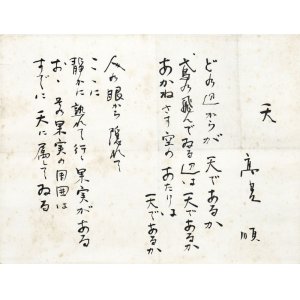 天
高見順
どの辺からが天であるか
鳶の飛んでゐる辺は天であるか
あかねさす空のあたりは
天であるか
人の眼から隠れて
こゝに
静かに熟れて行く果実がある
おゝその果実の周囲は
すでに天に属してゐる